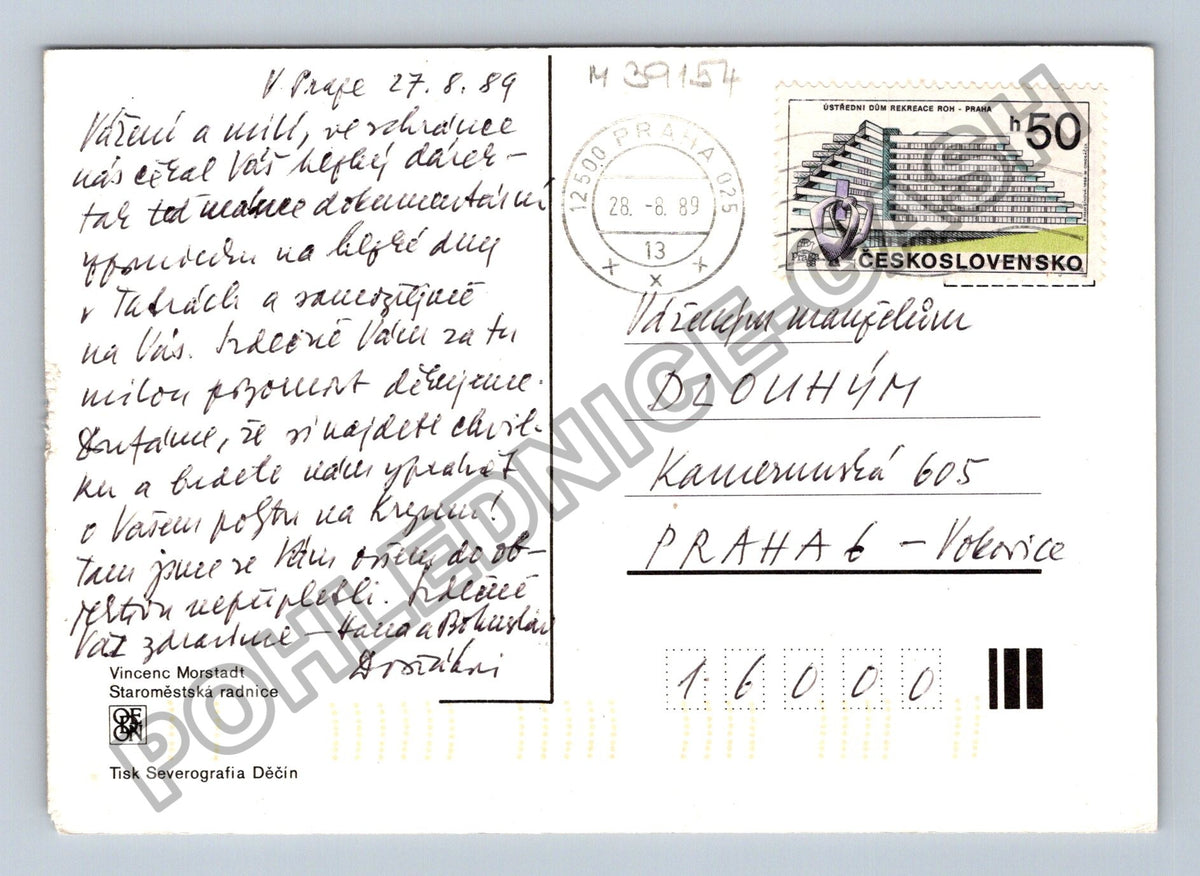 V Praze 27.8.89
Vážení a milí, ve schránce
nás čekal Váš hezký dárek –
tak teď máme dokumentární
vzpomínku na hezké dny
v Tatrách a samozřejmě
na Vás. Srdečně Vám za tu
milou pozornost děkujeme.
Doufáme, že si najdete chvil-
ku a budete nám vyprávět
o Vašem pobytu na Krymu!
Tam jsme se Vám do ob-
jektivu nepřipletli. Srdečně
Vás zdravíme – Hana a Bohuslav
Dostálovi
Vincenc Morstadt
Staroměstská radnice
ODEON
Tisk Severografia Děčín
M 39154
12500 PRAHA 025
28. -8. 89
13
+ x +
ÚSTŘEDNÍ DŮM REKREACE ROH - PRAHA
h 50
Praga
ČESKOSLOVENSKO
Váženým manželům
DLOUHÝM
Kamerunská 605
PRAHA 6 – Vokovice
16000
POHLEDNICE-CASH